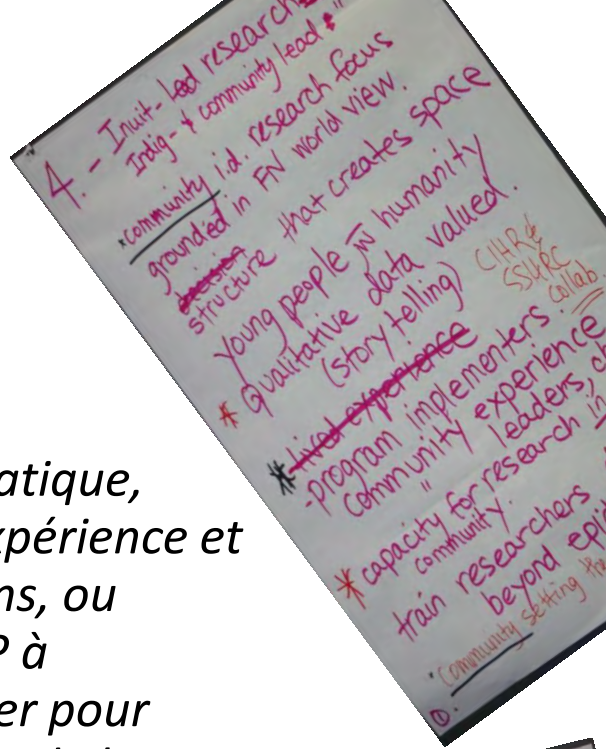 4. - Inuit-led research
Indig- & community lead
*community i.d. research focus
grounded in FN world view.
decision
structure that creates space
Young people in humanity
* Qualitative data valued.
(story telling)
CIHR &
SSHRC
collab
* lived experience
- program implementers
community experience
" leaders,
* capacity for research in
community.
train researchers
beyond
"Community setting
①.
atique,
xpérience et
ns, ou
P à
er pour